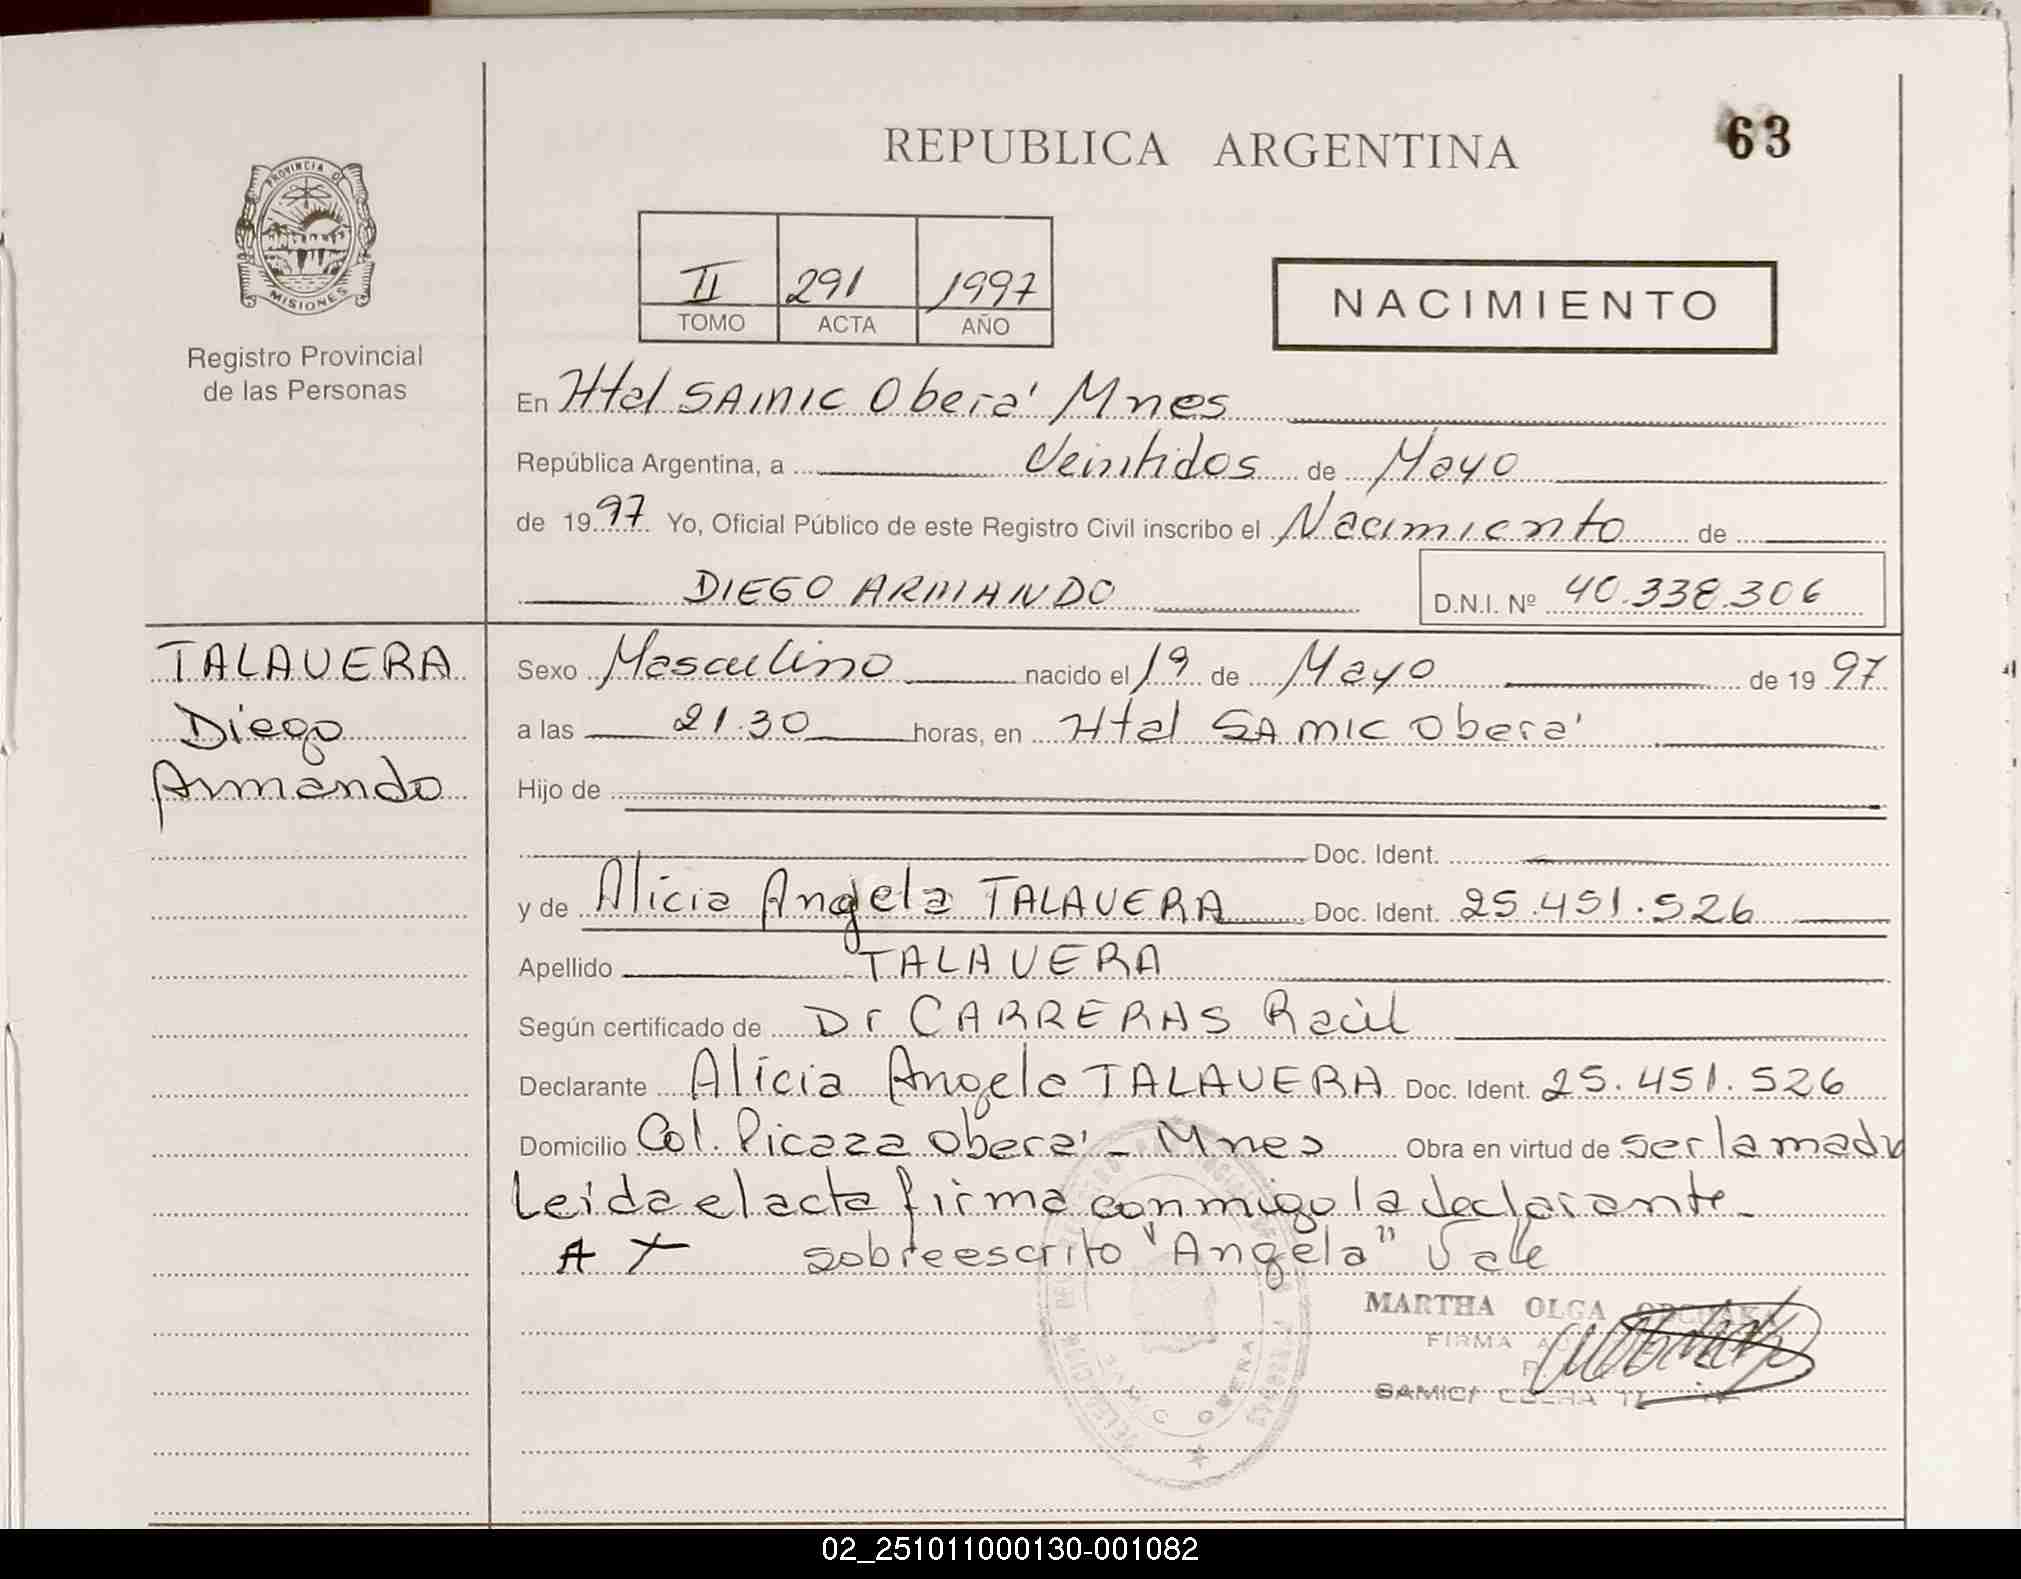 REPUBLICA ARGENTINA
63
PROVINCIA DE
MISIONES
Registro Provincial
de las Personas
II 291 1997
TOMO ACTA AÑO
NACIMIENTO
En Htal SAMIC Oberá Mnes
República Argentina, a Veintidos de Mayo
de 1997 Yo, Oficial Público de este Registro Civil inscribo el Nacimiento de
DIEGO ARMANDO D.N.I. Nº 40.338.306
TALAVERA
Diego
Armando
Sexo Masculino nacido el 19 de Mayo de 1997
a las 21.30 horas, en Htal SAMIC Oberá
Hijo de
Doc. Ident.
y de Alicia Angela TALAVERA Doc. Ident. 25.451.526
Apellido TALAVERA
Según certificado de Dr CARRERAS Raúl
Declarante Alicia Angela TALAVERA Doc. Ident. 25.451.526
Domicilio Col. Picaza Oberá - Mnes Obra en virtud de ser la madre
Leida el acta firma conmigo la declarante-
A T sobreescrito "Angela" Vale
MARTHA OLGA
FIRMA
SAMIC/ OBERA
OBERA
02_251011000130-001082